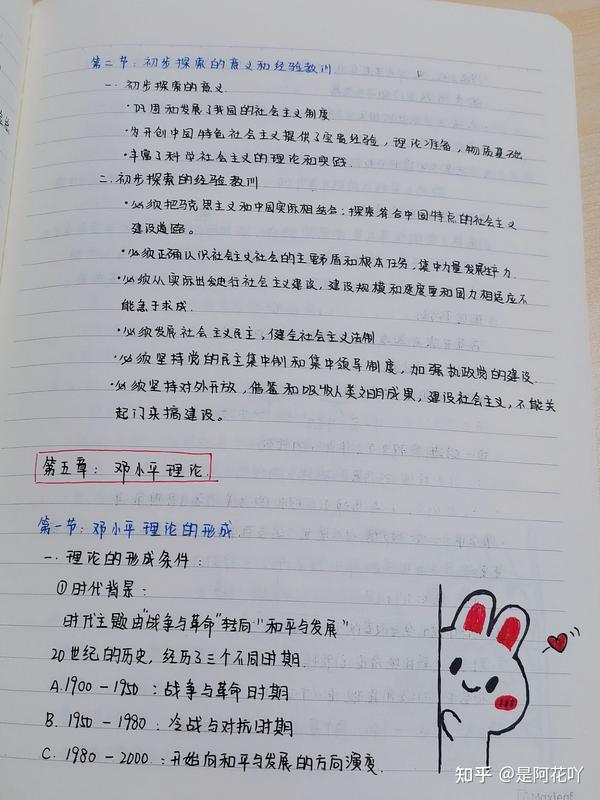 第二节：初步探索的意义和经验教训
一. 初步探索的意义
·巩固和发展了我国的社会主义制度
·为开创中国特色社会主义提供了宝贵经验，理论准备，物质基础
·丰富了科学社会主义的理论和实践.
二. 初步探索的经验教训
·必须把马克思主义和中国实际相结合：探索符合中国特点的社会主义
建设道路。
·必须正确认识社会主义社会的主要矛盾和根本任务，集中力量发展生产力.
·必须从实际出发进行社会主义建设，建设规模和速度要和国力相适应不
能急于求成.
·必须发展社会主义民主，健全社会主义法制
·必须坚持党的民主集中制和集中领导制度，加强执政党的建设.
·必须坚持对外开放，借鉴和吸收人类文明成果，建设社会主义，不能关
起门来搞建设。
第五章：邓小平理论.
第一节：邓小平理论的形成.
一. 理论的形成条件：
①时代背景：
时代主题由“战争与革命”转向“和平与发展”
20世纪的历史，经历了三个不同时期.
A.1900-1950：战争与革命时期
B. 1950-1980：冷战与对抗时期
C. 1980-2000：开始向和平与发展的方向演变.
知乎 @是阿花吖
Maxleaf